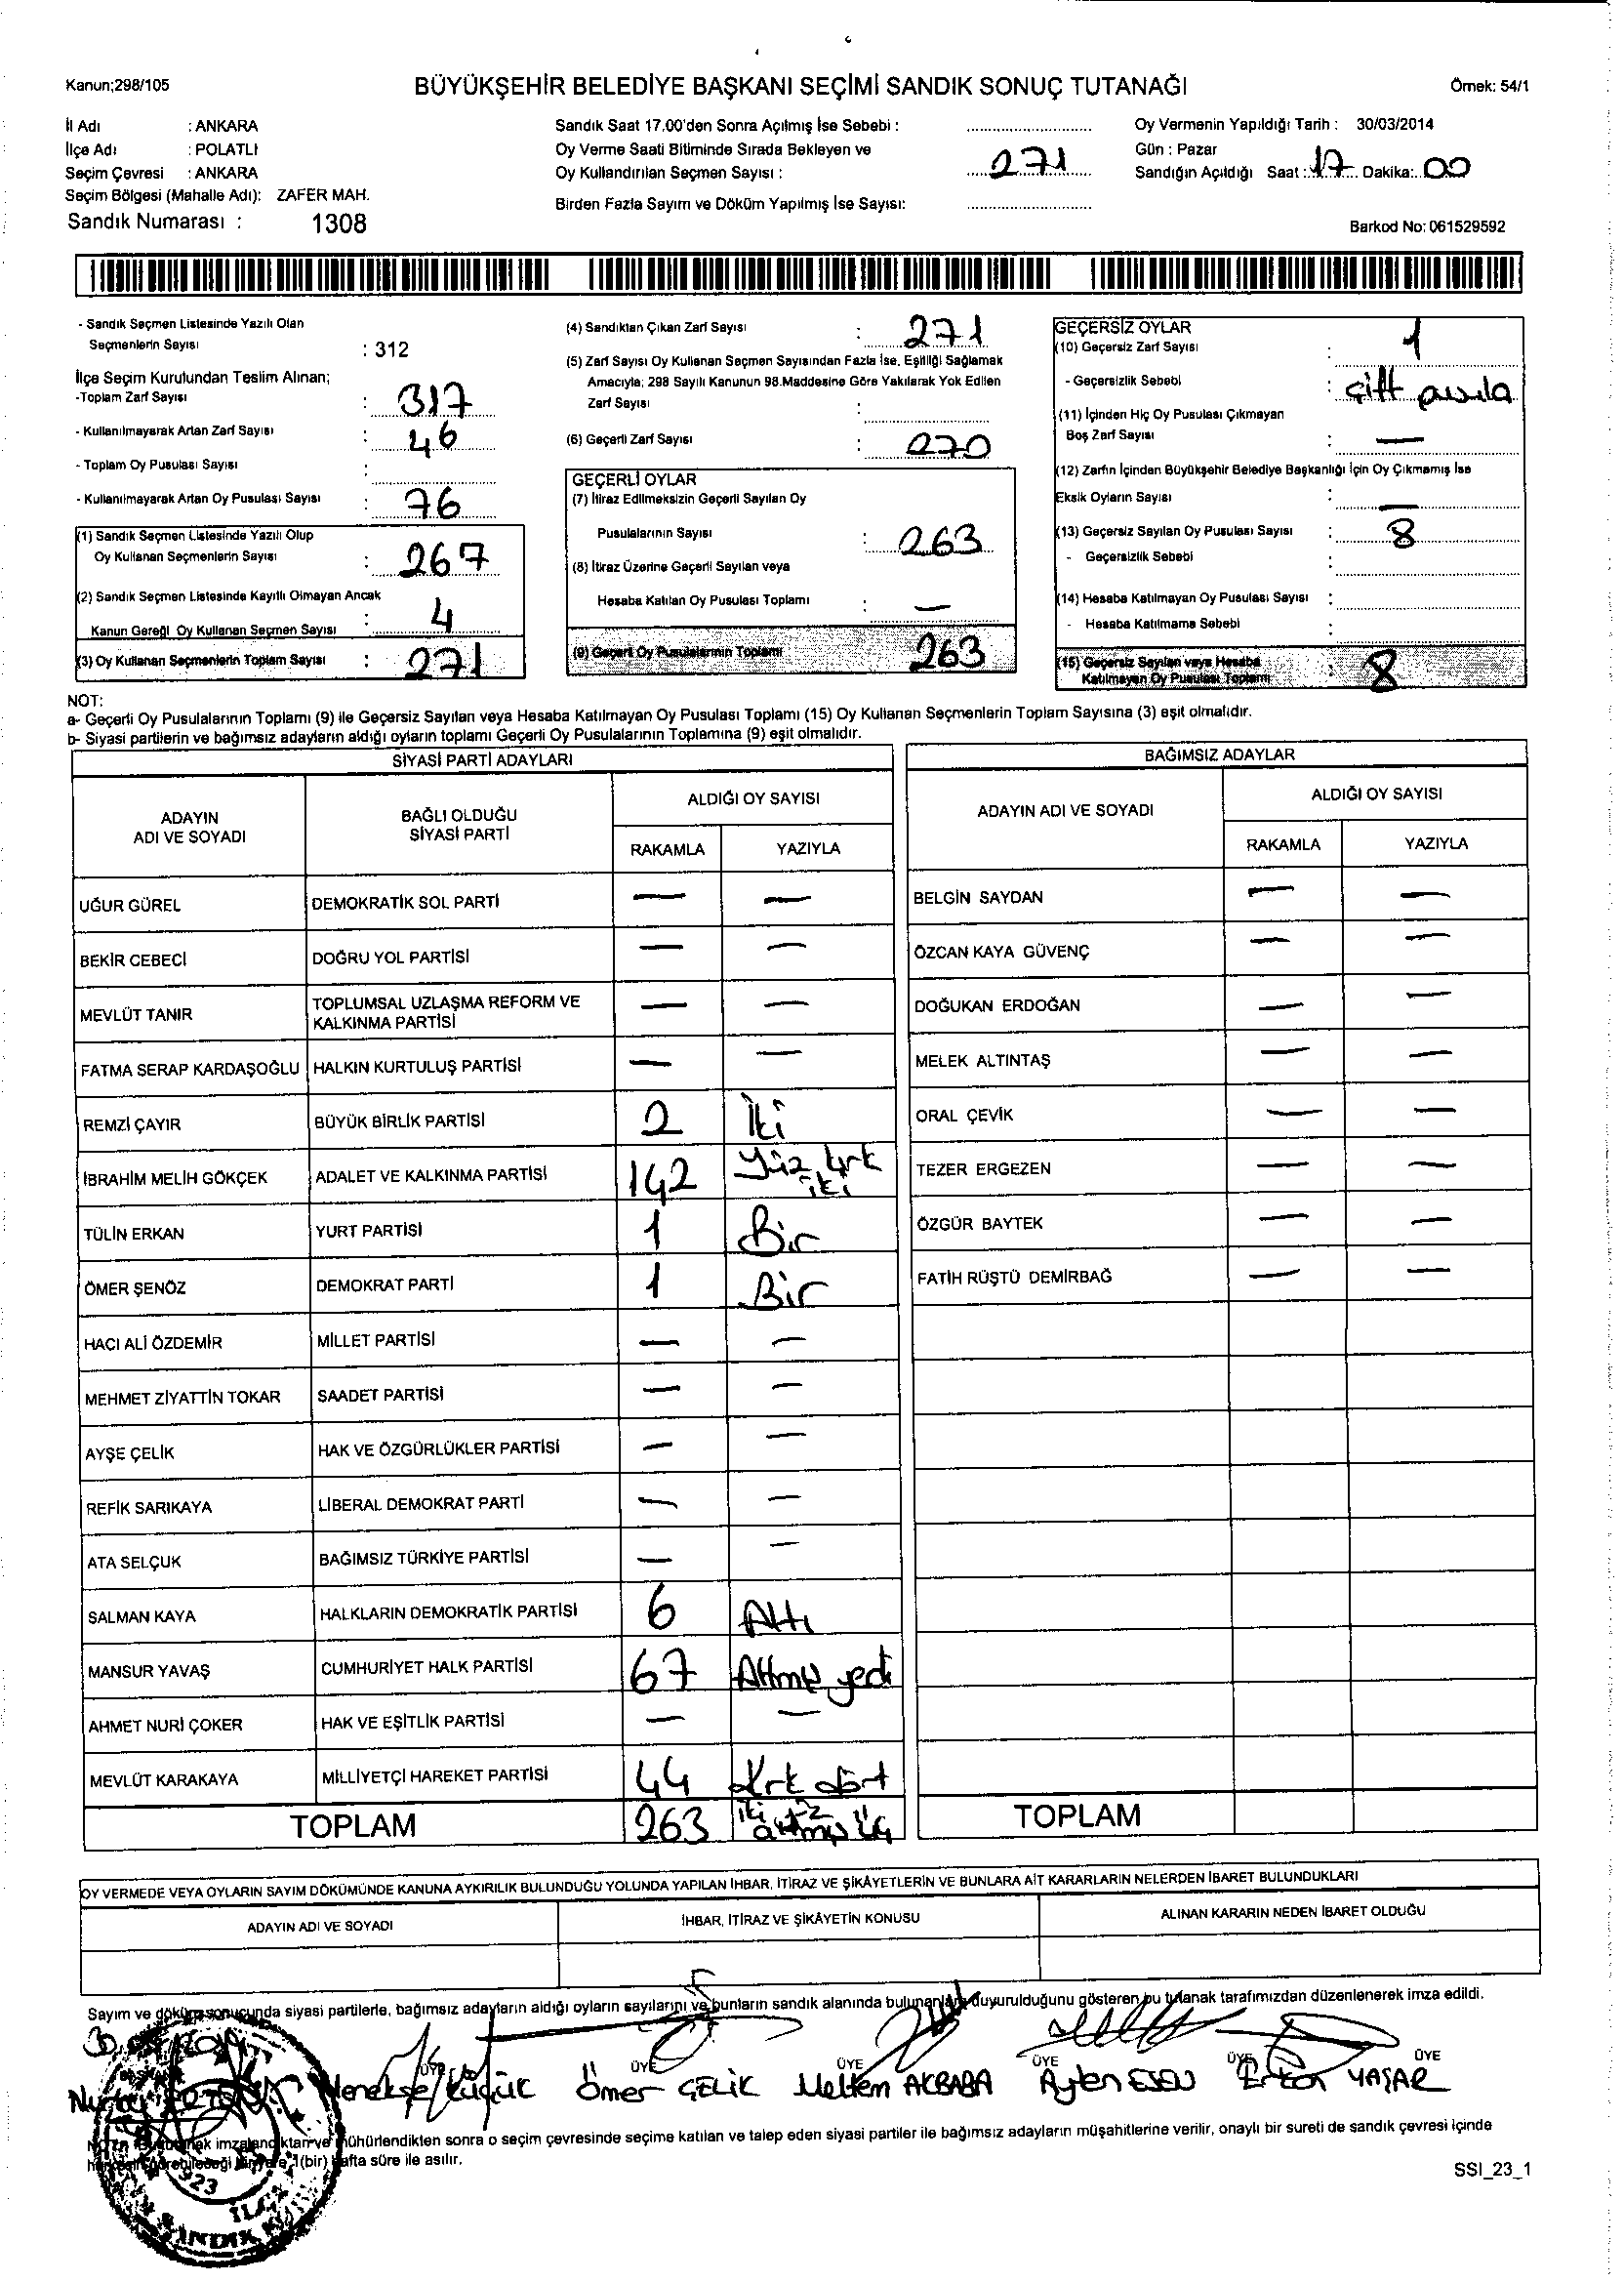 Kanun;298/105
BÜYÜKŞEHİR BELEDİYE BAŞKANI SEÇİMİ SANDIK SONUÇ TUTANAĞI
Örnek: 54/1
İl Adı : ANKARA
İlçe Adı : POLATLI
Seçim Çevresi : ANKARA
Seçim Bölgesi (Mahalle Adı): ZAFER MAH.
Sandık Numarası : 1308
Sandık Saat 17.00'den Sonra Açılmış İse Sebebi :
Oy Verme Saati Bitiminde Sırada Bekleyen ve
Oy Kullandırılan Seçmen Sayısı : 271
Birden Fazla Sayım ve Döküm Yapılmış İse Sayısı:
Oy Vermenin Yapıldığı Tarih : 30/03/2014
Gün : Pazar
Sandığın Açıldığı Saat : 17 Dakika: 00
Barkod No: 061529592
- Sandık Seçmen Listesinde Yazılı Olan
Seçmenlerin Sayısı : 312
İlçe Seçim Kurulundan Teslim Alınan;
-Toplam Zarf Sayısı : 317
- Kullanılmayarak Artan Zarf Sayısı : 46
- Toplam Oy Pusulası Sayısı :
- Kullanılmayarak Artan Oy Pusulası Sayısı : 76
(1) Sandık Seçmen Listesinde Yazılı Olup
Oy Kullanan Seçmenlerin Sayısı : 267
(2) Sandık Seçmen Listesinde Kayıtlı Olmayan Ancak
Kanun Gereği Oy Kullanan Seçmen Sayısı : 4
(3) Oy Kullanan Seçmenlerin Toplam Sayısı : 271
(4) Sandıktan Çıkan Zarf Sayısı : 271
(5) Zarf Sayısı Oy Kullanan Seçmen Sayısından Fazla İse, Eşitliği Sağlamak
Amacıyla; 298 Sayılı Kanunun 98.Maddesine Göre Yakılarak Yok Edilen
Zarf Sayısı :
(6) Geçerli Zarf Sayısı : 270
GEÇERLİ OYLAR
(7) İtiraz Edilmeksizin Geçerli Sayılan Oy
Pusulalarının Sayısı : 263
(8) İtiraz Üzerine Geçerli Sayılan veya
Hesaba Katılan Oy Pusulası Toplamı : —
(9) Geçerli Oy Pusulalarının Toplamı 263
GEÇERSİZ OYLAR
(10) Geçersiz Zarf Sayısı : 1
- Geçersizlik Sebebi : çift pusula
(11) İçinden Hiç Oy Pusulası Çıkmayan
Boş Zarf Sayısı : —
(12) Zarfın İçinden Büyükşehir Belediye Başkanlığı İçin Oy Çıkmamış İse
Eksik Oyların Sayısı : —
(13) Geçersiz Sayılan Oy Pusulası Sayısı : 8
- Geçersizlik Sebebi :
(14) Hesaba Katılmayan Oy Pusulası Sayısı :
- Hesaba Katılmama Sebebi :
(15) Geçersiz Sayılan veya Hesaba
Katılmayan Oy Pusulası Toplamı : 8
NOT:
a- Geçerli Oy Pusulalarının Toplamı (9) ile Geçersiz Sayılan veya Hesaba Katılmayan Oy Pusulası Toplamı (15) Oy Kullanan Seçmenlerin Toplam Sayısına (3) eşit olmalıdır.
b- Siyasi partilerin ve bağımsız adayların aldığı oyların toplamı Geçerli Oy Pusulalarının Toplamına (9) eşit olmalıdır.
SİYASİ PARTİ ADAYLARI
ADAYIN
ADI VE SOYADI
BAĞLI OLDUĞU
SİYASİ PARTİ
ALDIĞI OY SAYISI
RAKAMLA YAZIYLA
UĞUR GÜREL DEMOKRATİK SOL PARTİ — —
BEKİR CEBECİ DOĞRU YOL PARTİSİ — —
MEVLÜT TANIR TOPLUMSAL UZLAŞMA REFORM VE
KALKINMA PARTİSİ — —
FATMA SERAP KARDAŞOĞLU HALKIN KURTULUŞ PARTİSİ — —
REMZİ ÇAYIR BÜYÜK BİRLİK PARTİSİ 2 İki
İBRAHİM MELİH GÖKÇEK ADALET VE KALKINMA PARTİSİ 142 Yüz kırk
iki
TÜLİN ERKAN YURT PARTİSİ 1 Bir
ÖMER ŞENÖZ DEMOKRAT PARTİ 1 Bir
HACI ALİ ÖZDEMİR MİLLET PARTİSİ — —
MEHMET ZİYATTİN TOKAR SAADET PARTİSİ — —
AYŞE ÇELİK HAK VE ÖZGÜRLÜKLER PARTİSİ — —
REFİK SARIKAYA LİBERAL DEMOKRAT PARTİ — —
ATA SELÇUK BAĞIMSIZ TÜRKİYE PARTİSİ — —
SALMAN KAYA HALKLARIN DEMOKRATİK PARTİSİ 6 Altı
MANSUR YAVAŞ CUMHURİYET HALK PARTİSİ 67 Altmış yedi
AHMET NURİ ÇOKER HAK VE EŞİTLİK PARTİSİ — —
MEVLÜT KARAKAYA MİLLİYETÇİ HAREKET PARTİSİ 44 Kırk dört
TOPLAM 263 iki yüz
altmış üç
BAĞIMSIZ ADAYLAR
ADAYIN ADI VE SOYADI
ALDIĞI OY SAYISI
RAKAMLA YAZIYLA
BELGİN SAYDAN — —
ÖZCAN KAYA GÜVENÇ — —
DOĞUKAN ERDOĞAN — —
MELEK ALTINTAŞ — —
ORAL ÇEVİK — —
TEZER ERGEZEN — —
ÖZGÜR BAYTEK — —
FATİH RÜŞTÜ DEMİRBAĞ — —
TOPLAM
OY VERMEDE VEYA OYLARIN SAYIM DÖKÜMÜNDE KANUNA AYKIRILIK BULUNDUĞU YOLUNDA YAPILAN İHBAR, İTİRAZ VE ŞİKÂYETLERİN VE BUNLARA AİT KARARLARIN NELERDEN İBARET BULUNDUKLARI
ADAYIN ADI VE SOYADI İHBAR, İTİRAZ VE ŞİKÂYETİN KONUSU ALINAN KARARIN NEDEN İBARET OLDUĞU
Sayım ve döküm sonucunda siyasi partilerle, bağımsız adayların aldığı oyların sayılarını ve bunların sandık alanında bulunanlara duyurulduğunu gösteren bu tutanak tarafımızdan düzenlenerek imza edildi.
ÜYE ÜYE ÜYE ÜYE ÜYE
Menekşe Küçük Ömer ÇELİK Meltem AKBABA Ayten ESEN Erkan YAŞAR
imzalandıktan ve mühürlendikten sonra o seçim çevresinde seçime katılan ve talep eden siyasi partiler ile bağımsız adayların müşahitlerine verilir, onaylı bir sureti de sandık çevresi içinde
1(bir) hafta süre ile asılır.
SSI_23_1